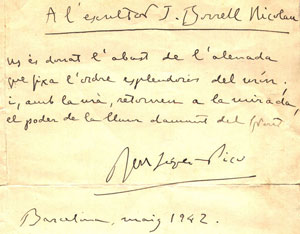 A l'escultor J. Borrell Nicolau
us és donat l'abast de l'alenada
que fixa l'ordre esplendorós del món.
i, amb la mà, retorneu a la mirada,
el poder de la llum damunt del front
Barcelona, maig 1942.